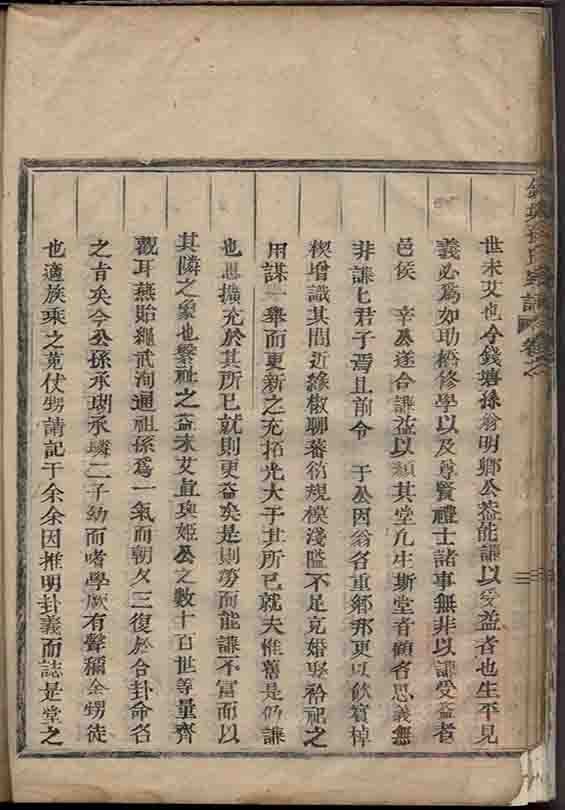 世未艾也今錢塘孫翁明鄉公葢能謙以受益者也生平見
義必爲如助橋修學以及尊賢禮士諸事無非以謙受益者
邑侯 辛公遂合謙益以額其堂凡生斯堂者顧名思義無
非謙七君子焉且前令 于公因翁名重鄉邦更以飲賓棹
楔增識其間近緣椒聊蕃衍規模淺隘不足克婚娶祫祀之
用謀一舉而更新之充拓光大于其所已就夫惟舊是仍謙
也思擴充於其所已就則更益矣是則勞而能謙不富而以
其隣之象也繫祉之益未艾直與姬公之數十百世等量齊
觀耳燕貽繩武洵迺祖孫爲一氣而朝夕三復於合卦命名
之旨矣今公孫承瑚承璘二子幼而嗜學厥有聲稱余甥徒
也適族乘之蒐伏甥請記于余余因推明卦義而誌是堂之